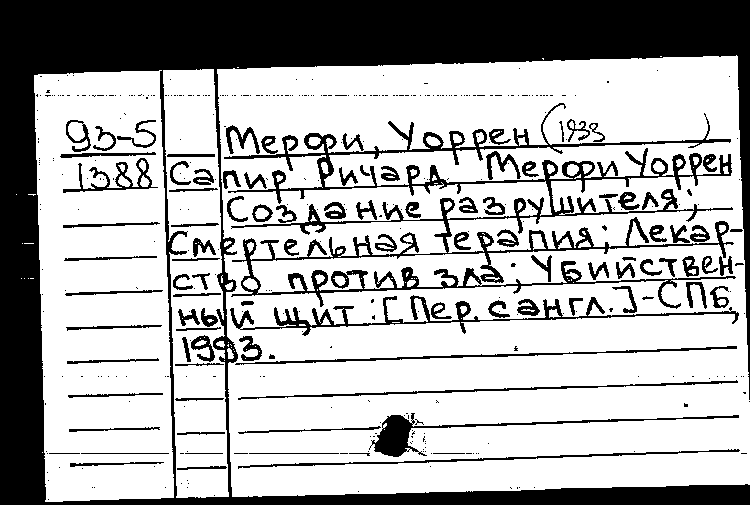 93-5 Мерфи, Уоррен (1933 )
1388 Сапир, Ричард, Мерфи, Уоррен
Создание разрушителя;
Смертельная терапия; Лекар-
ство против зла; Убийствен-
ный щит : [Пер. с англ.]-СПб,
1993.